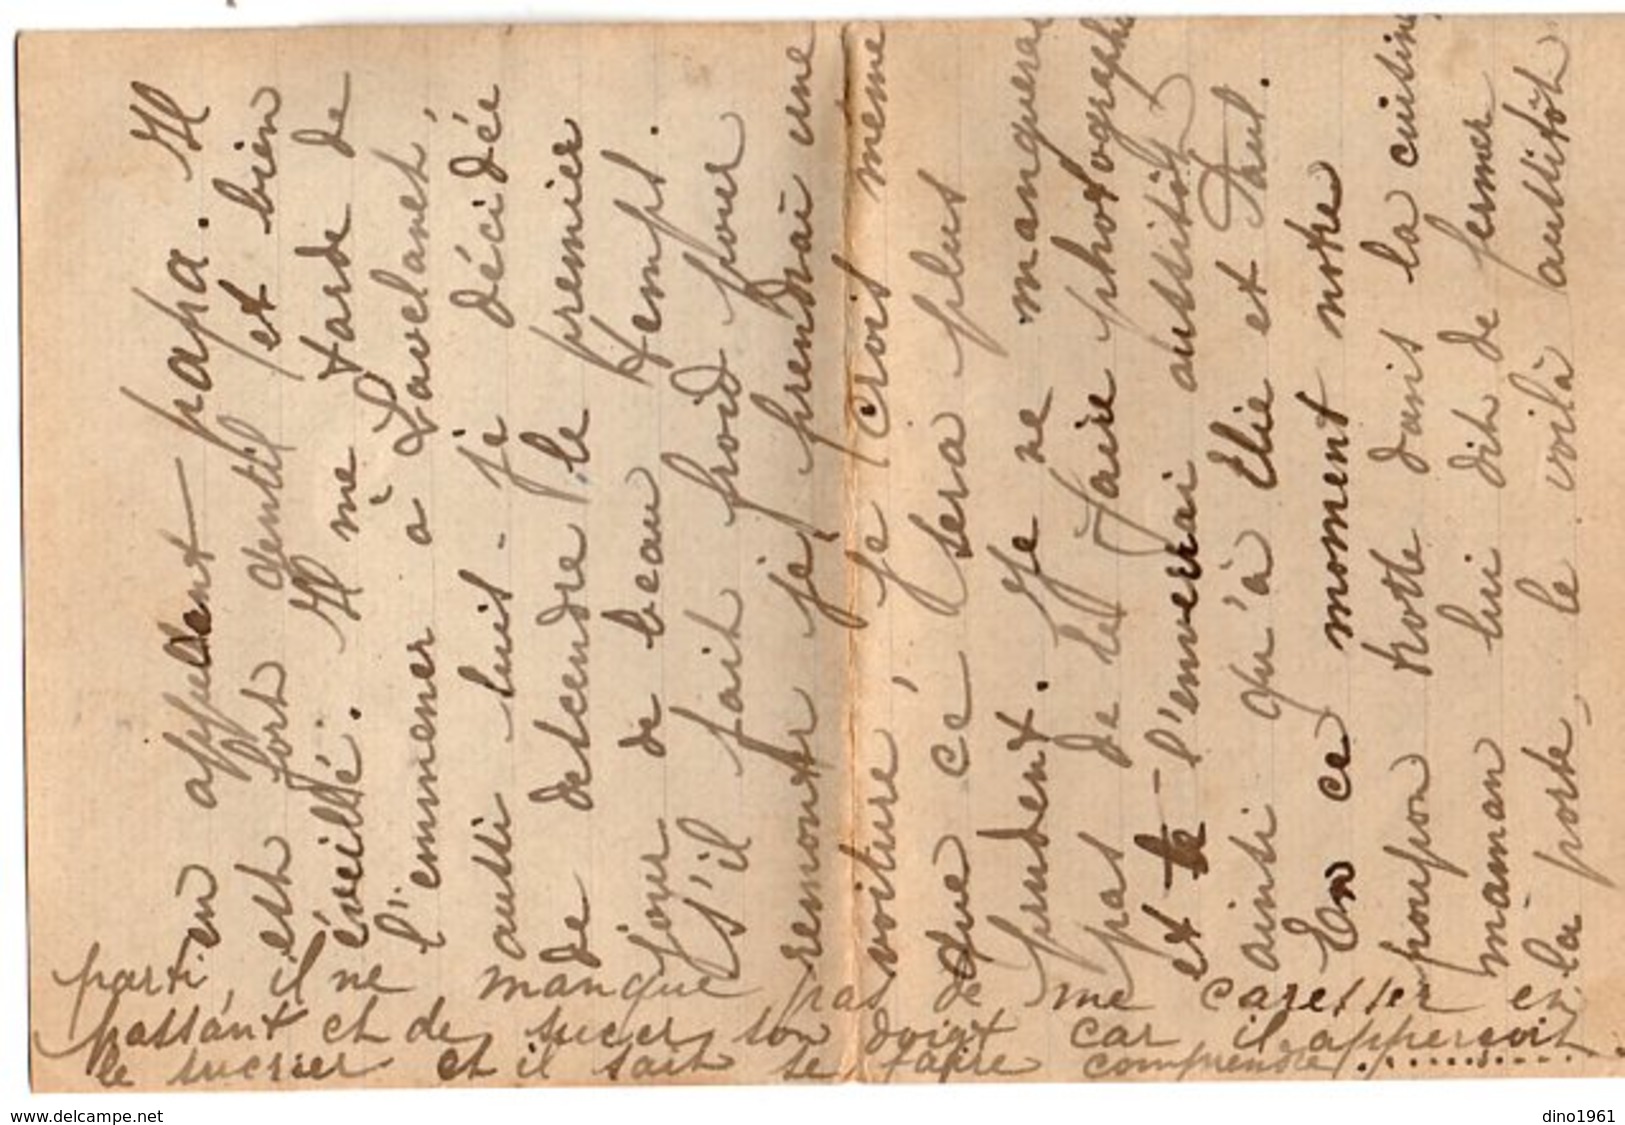 en appelant papa. Il
est fort gentil et bien
éveillé. Il me tarde de
l'emmener à Lavelanet,
aussi suis-je décidée
de descendre le premier
jour de beau temps.
S'il fait froid pour
remonter je prendrai une
voiture, je crois même
que ce sera plus
prudent. Je ne manquerai
pas de le faire photographier
et l'enverrai aussitôt
ainsi qu'à Elie et Paul.
En ce moment notre
poupon trotte dans la cuisine
maman lui dit de fermer
la porte, le voilà aussitôt
parti, il ne manque pas de me caresser en
passant et de sucer son doigt car il apperçoit
le sucrier et il sait se faire comprendre..........
www.delcampe.net
dino1961